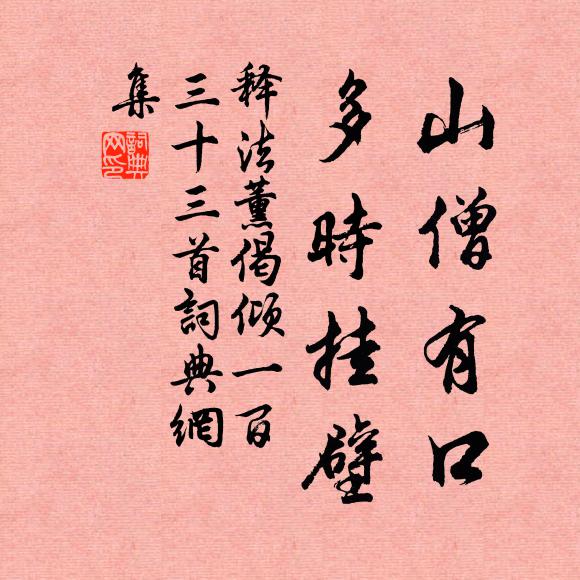 山僧有口
多時挂壁
释法薰偈倾一百
三十三首詞典網
集
詞典
网印